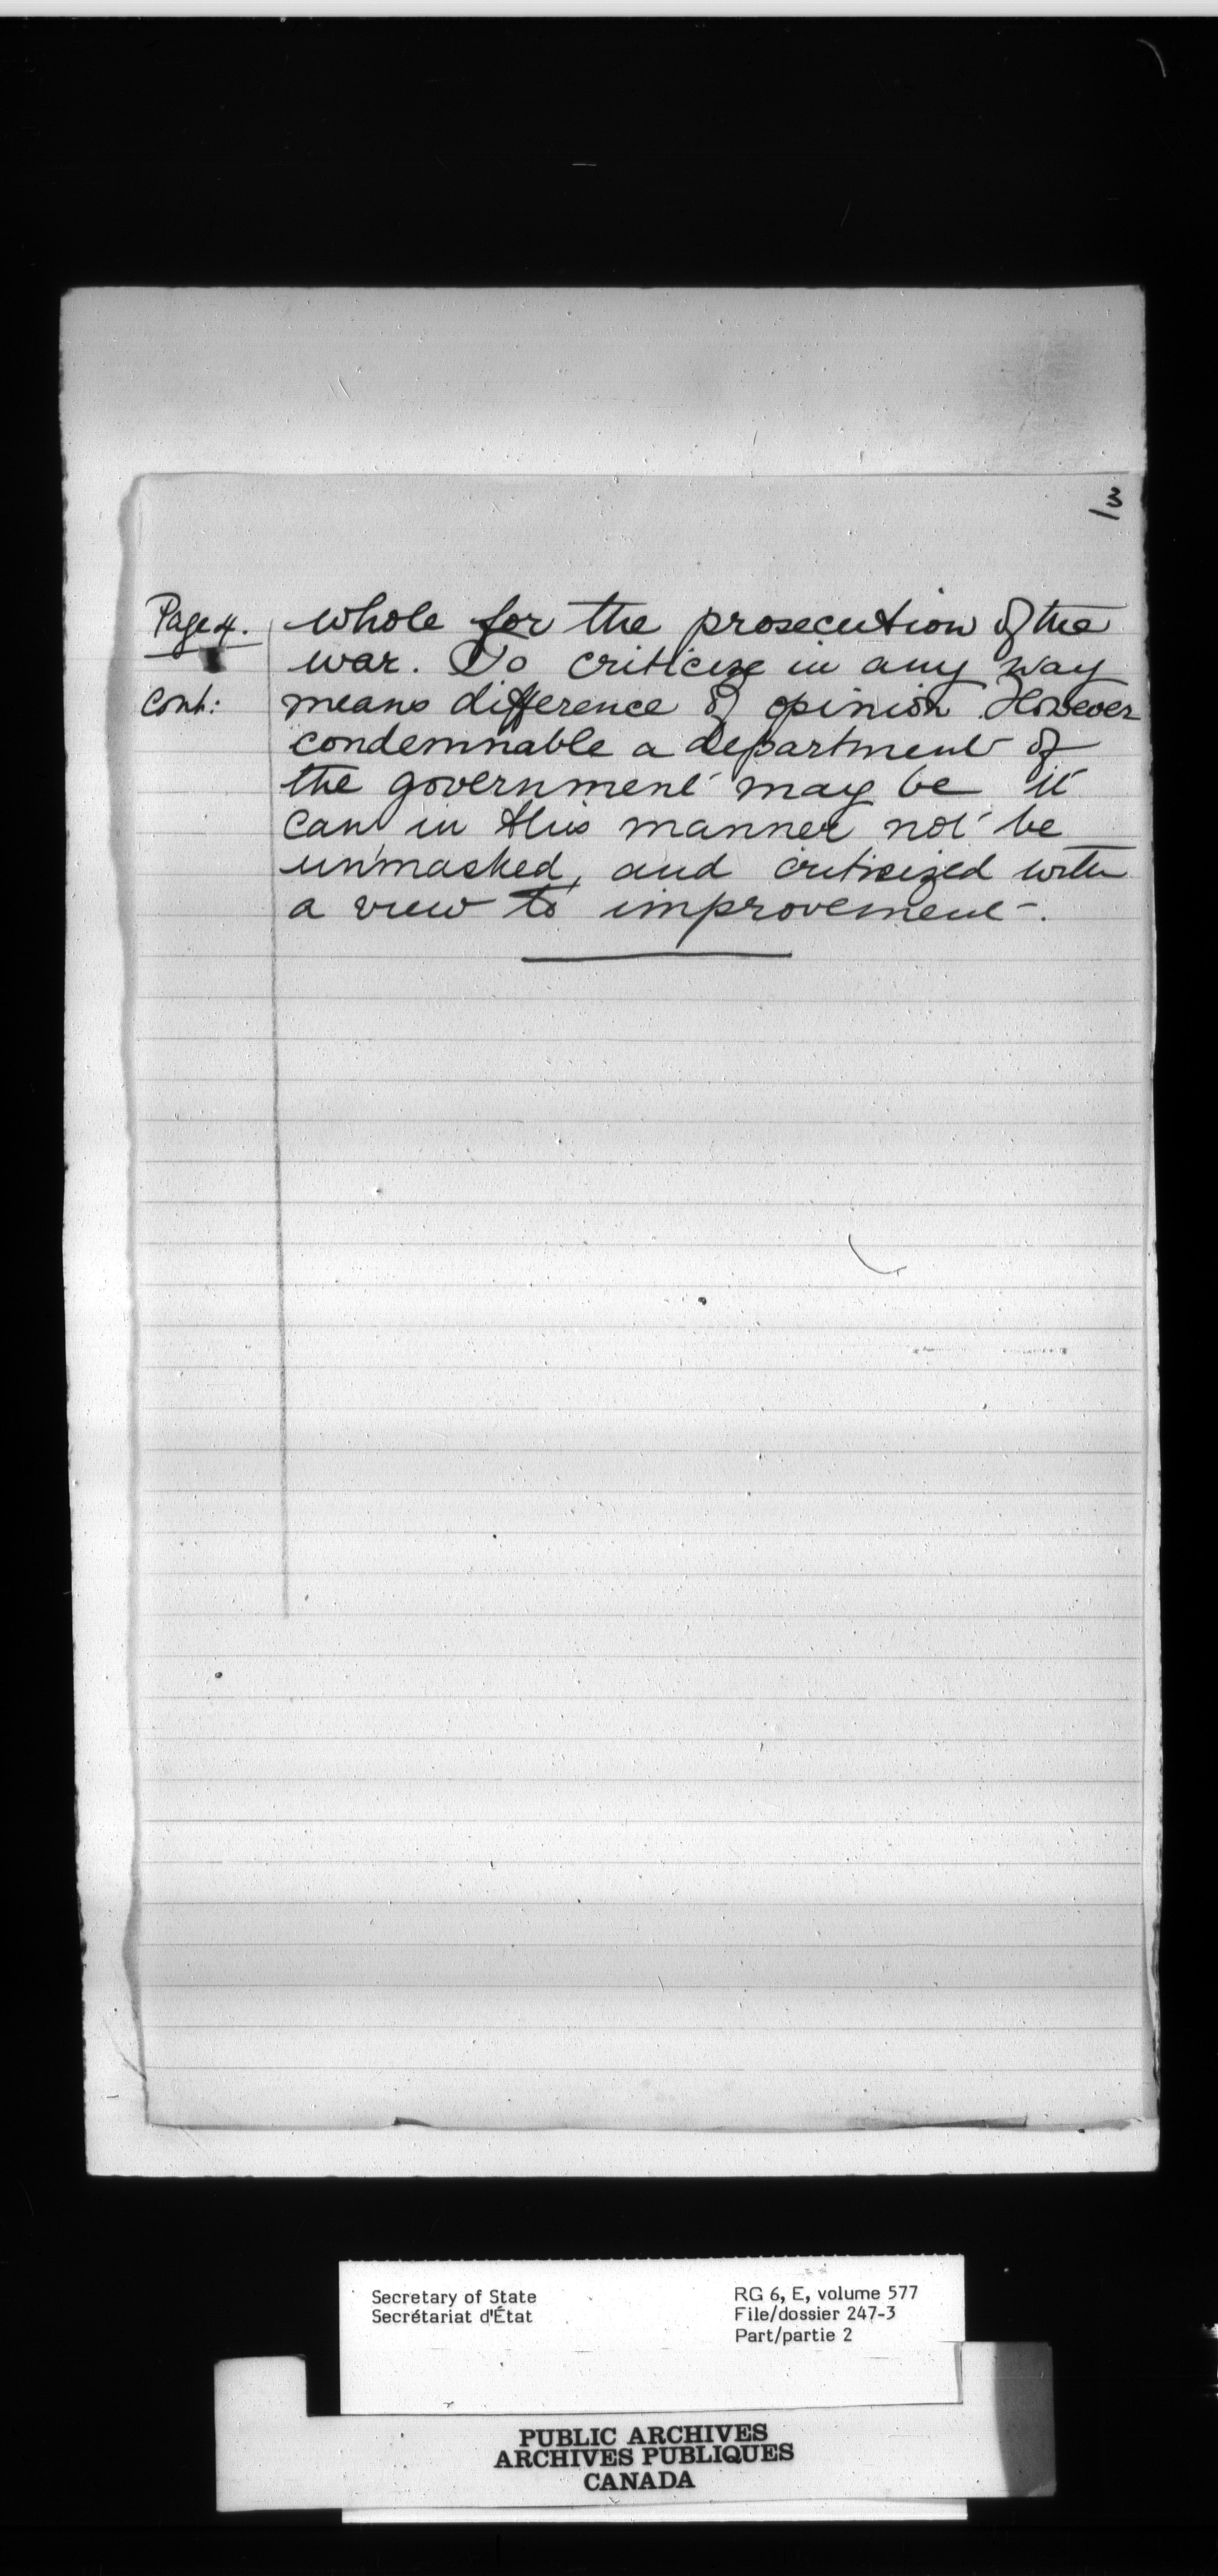 3
Page 4. whole for the prosecution of the
war. To criticize in any way
cont: means difference of opinion. However
condemnable a department of
the government may be it
can in this manner not be
unmasked, and criticized with
a view to improvement.
Secretary of State
Secrétariat d'État
RG 6, E, volume 577
File/dossier 247-3
Part/partie 2
PUBLIC ARCHIVES
ARCHIVES PUBLIQUES
CANADA